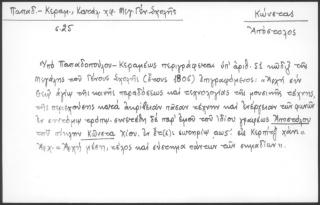 Παπαδ.-Κεραμ., Κατάλ. χφ. Μεγ. Γεν. Σχολῆς
Κώνστας
σ.25
Ἀπόστολος
Ὑπὸ Παπαδοπούλου-Κεραμέως περιγράφεται ὑπ' ἀριθ. 51 κῶδιξ τῆς
Μεγάλης τοῦ Γένους Σχολῆς (ἔτους 1805) ἐπιγραφόμενος: «Ἀρχὴ σὺν
Θεῷ ἁγίῳ τῆς καινῆς παραδόσεως καὶ τεχνολογίας τῆς μουσικῆς τέχνης,
τῆς περιεχούσης κατὰ ἀκρίβειαν πᾶσαν τέχνην καὶ ἐνέργειαν τῶν φωνῶν
ἐν συντόμῳ τρόπῳ. συνετέθη δὲ παρ' ἐμοῦ τοῦ ἰδίου γραφέως Ἀποστόλου
τοῦ ἐπίκλην Κώνστα Χίου. ἐν ἔτ(ει) σωτηρίῳ ͵αωε΄. εἰς χάνι».
Ἀρχ. «Ἀρχὴ μέση, τέλος καὶ σύστημα πάντων τῶν σημαδίων».